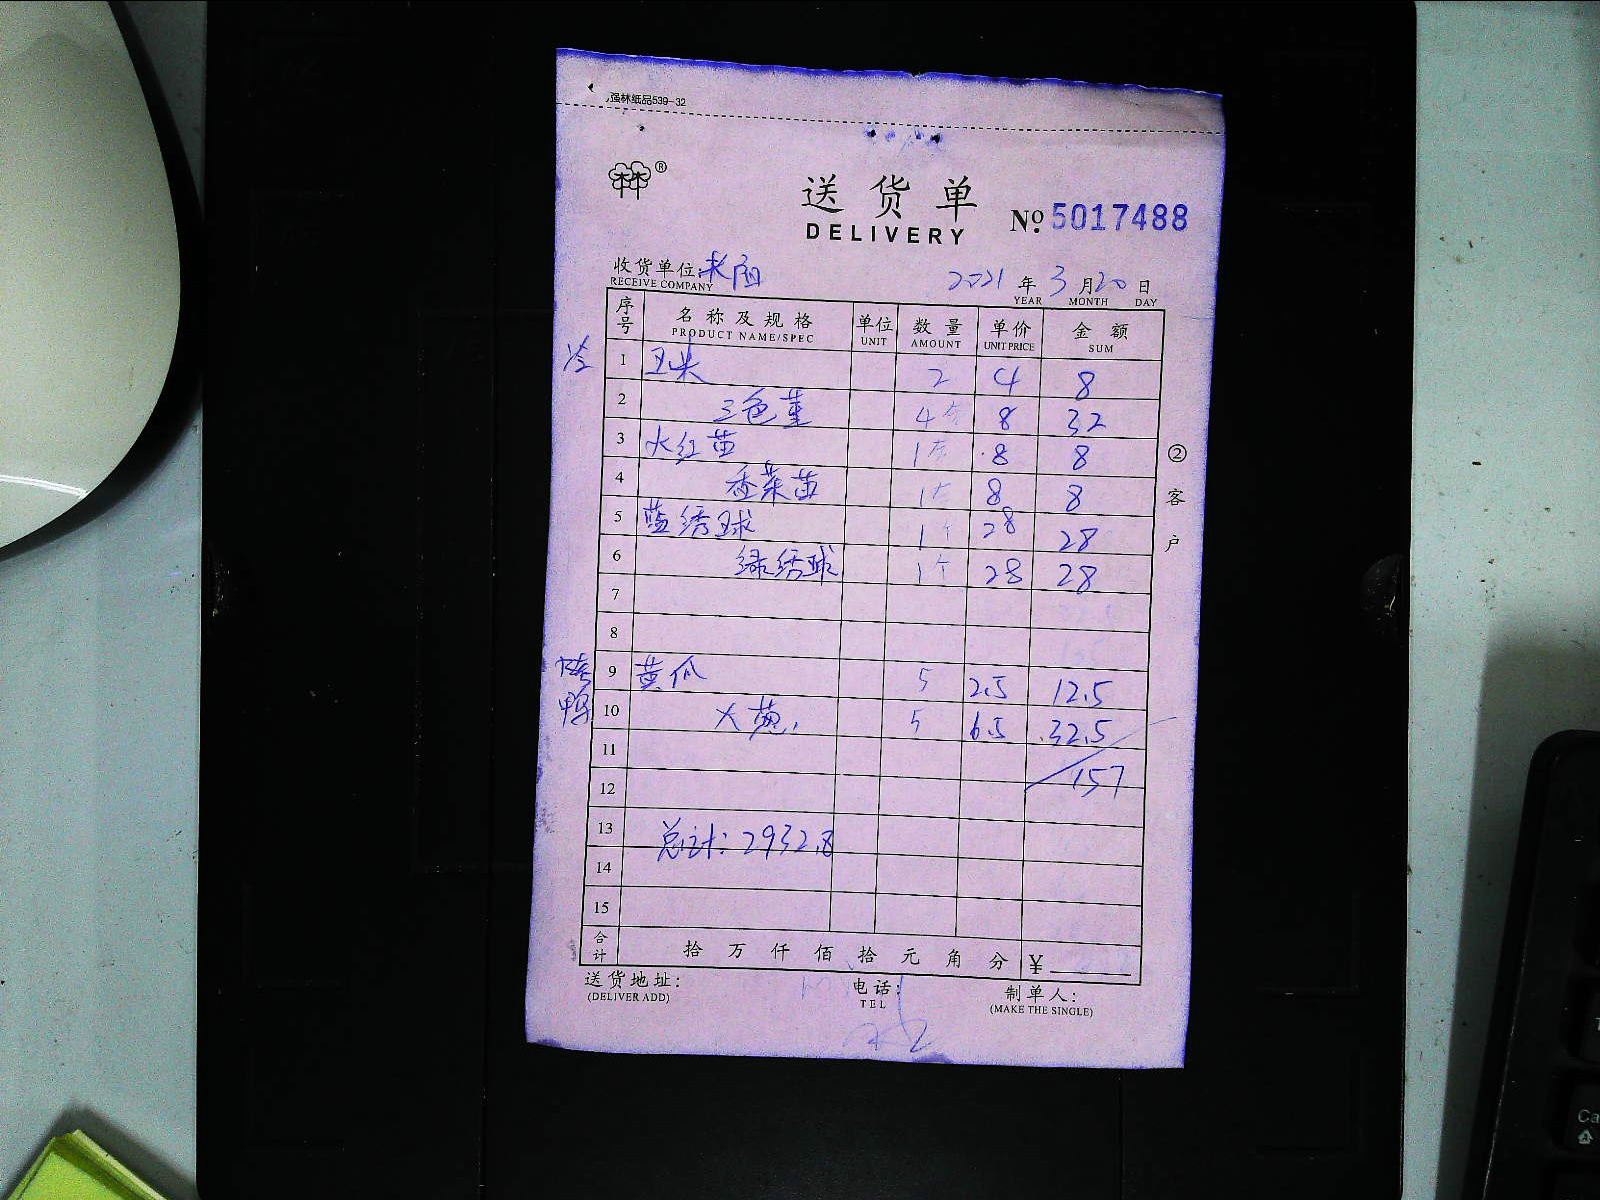 强林纸品539-32
林林®
送货单
DELIVERY
№ 5017488
收货单位
RECEIVE COMPANY
2021 年 3 月 20 日
YEAR MONTH DAY
序号 名称及规格 单位 数量 单价 金额
PRODUCT NAME/SPEC UNIT AMOUNT UNIT PRICE SUM
冷 1 玉米 2 4 8
2 三色堇 4 8 32
3 大红苗 1 8 8
4 香菜苗 1 8 8
5 蓝绣球 1个 28 28
6 绿绣球 1个 28 28
7
8
烤鸭 9 黄瓜 5 2.5 12.5
10 大葱 5 6.5 32.5
11 157
12
13 总计:2932.8
14
15
合计 拾 万 仟 佰 拾 元 角 分 ¥
送货地址: 电话: 制单人:
(DELIVER ADD) TEL (MAKE THE SINGLE)
②客户